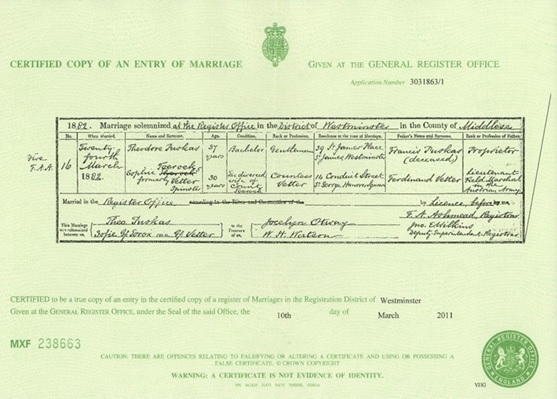 CERTIFIED COPY OF AN ENTRY OF MARRIAGE
GIVEN AT THE GENERAL REGISTER OFFICE
Application Number 3031863/1
1882. Marriage solemnized at the Register Office in the District of Westminster in the County of Middlesex
No. When Married. Name and Surname. Age. Condition. Rank or Profession. Residence at the time of Marriage. Father's Name and Surname. Rank or Profession of Father.
16 Twenty fourth March 1882. Theodore 37 years Bachelor Gentleman 39 St James Place St James Westminster Francis (deceased) Proprietor
Sophie formerly Vetter Spinster 30 years Countess Vetter 16 Conduit Street St George Hanover Square Ferdinand Vetter Lieutenant Field Marshal in the Austrian Army
Married in the Register Office by Licence before me,
This Marriage was solemnized between us, Theo. in the Presence of us, Jocelyn Otway F. A. Ashmead Registrar
Vetter W. H. Watson Superintendent Registrar
CERTIFIED to be a true copy of an entry in the certified copy of a register of Marriages in the Registration District of Westminster
Given at the GENERAL REGISTER OFFICE, under the Seal of the said Office, the 10th day of March 2011
MXF 238663
CAUTION: THERE ARE OFFENCES RELATING TO FALSIFYING OR ALTERING A CERTIFICATE AND USING OR POSSESSING A
FALSE CERTIFICATE. © CROWN COPYRIGHT
WARNING: A CERTIFICATE IS NOT EVIDENCE OF IDENTITY.
GENERAL REGISTER OFFICE
ENGLAND